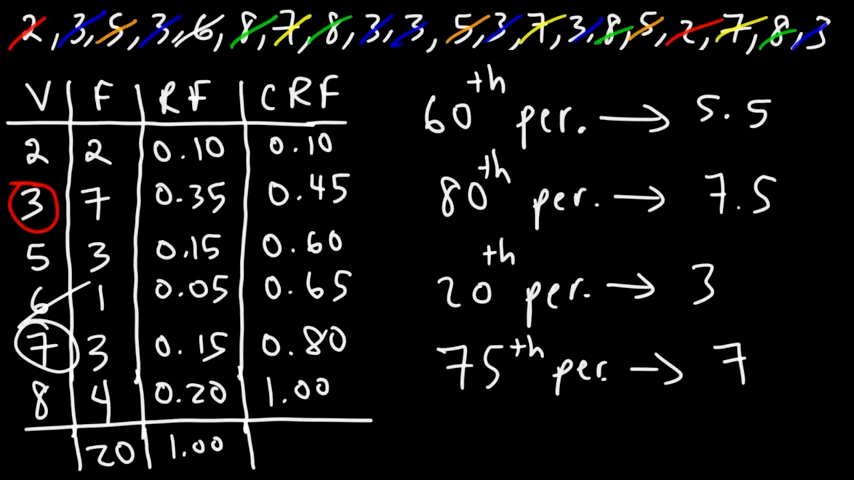 2, 3, 5, 3, 6, 8, 7, 8, 3, 3, 5, 3, 7, 3, 8, 5, 2, 7, 8, 3
V F RF CRF
2 2 0.10 0.10
3 7 0.35 0.45
5 3 0.15 0.60
6 1 0.05 0.65
7 3 0.15 0.80
8 4 0.20 1.00
20 1.00
60th per. → 5.5
80th per. → 7.5
20th per. → 3
75th per. → 7